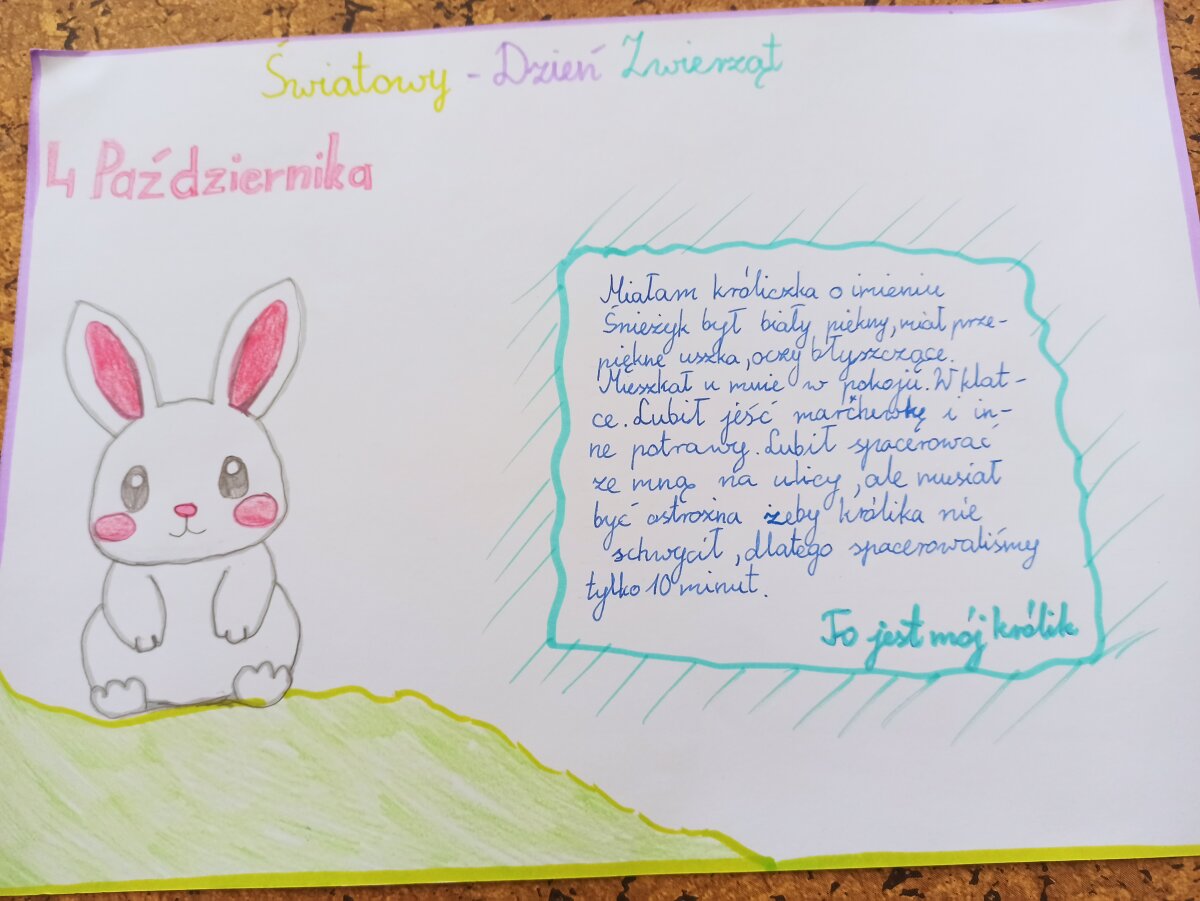 Światowy - Dzień Zwierząt
4 Października
Miałam króliczka o imieniu
Śnieżyk był biały piękny, miał prze-
piękne uszka, oczy błyszczące.
Mieszkał u mnie w pokoju. W klat-
ce. Lubił jeść marchewkę i in-
ne potrawy. Lubił spacerować
ze mną na ulicy, ale musiał
być ostrożna żeby królika nie
schwycił, dlatego spacerowaliśmy
tylko 10 minut.
To jest mój królik